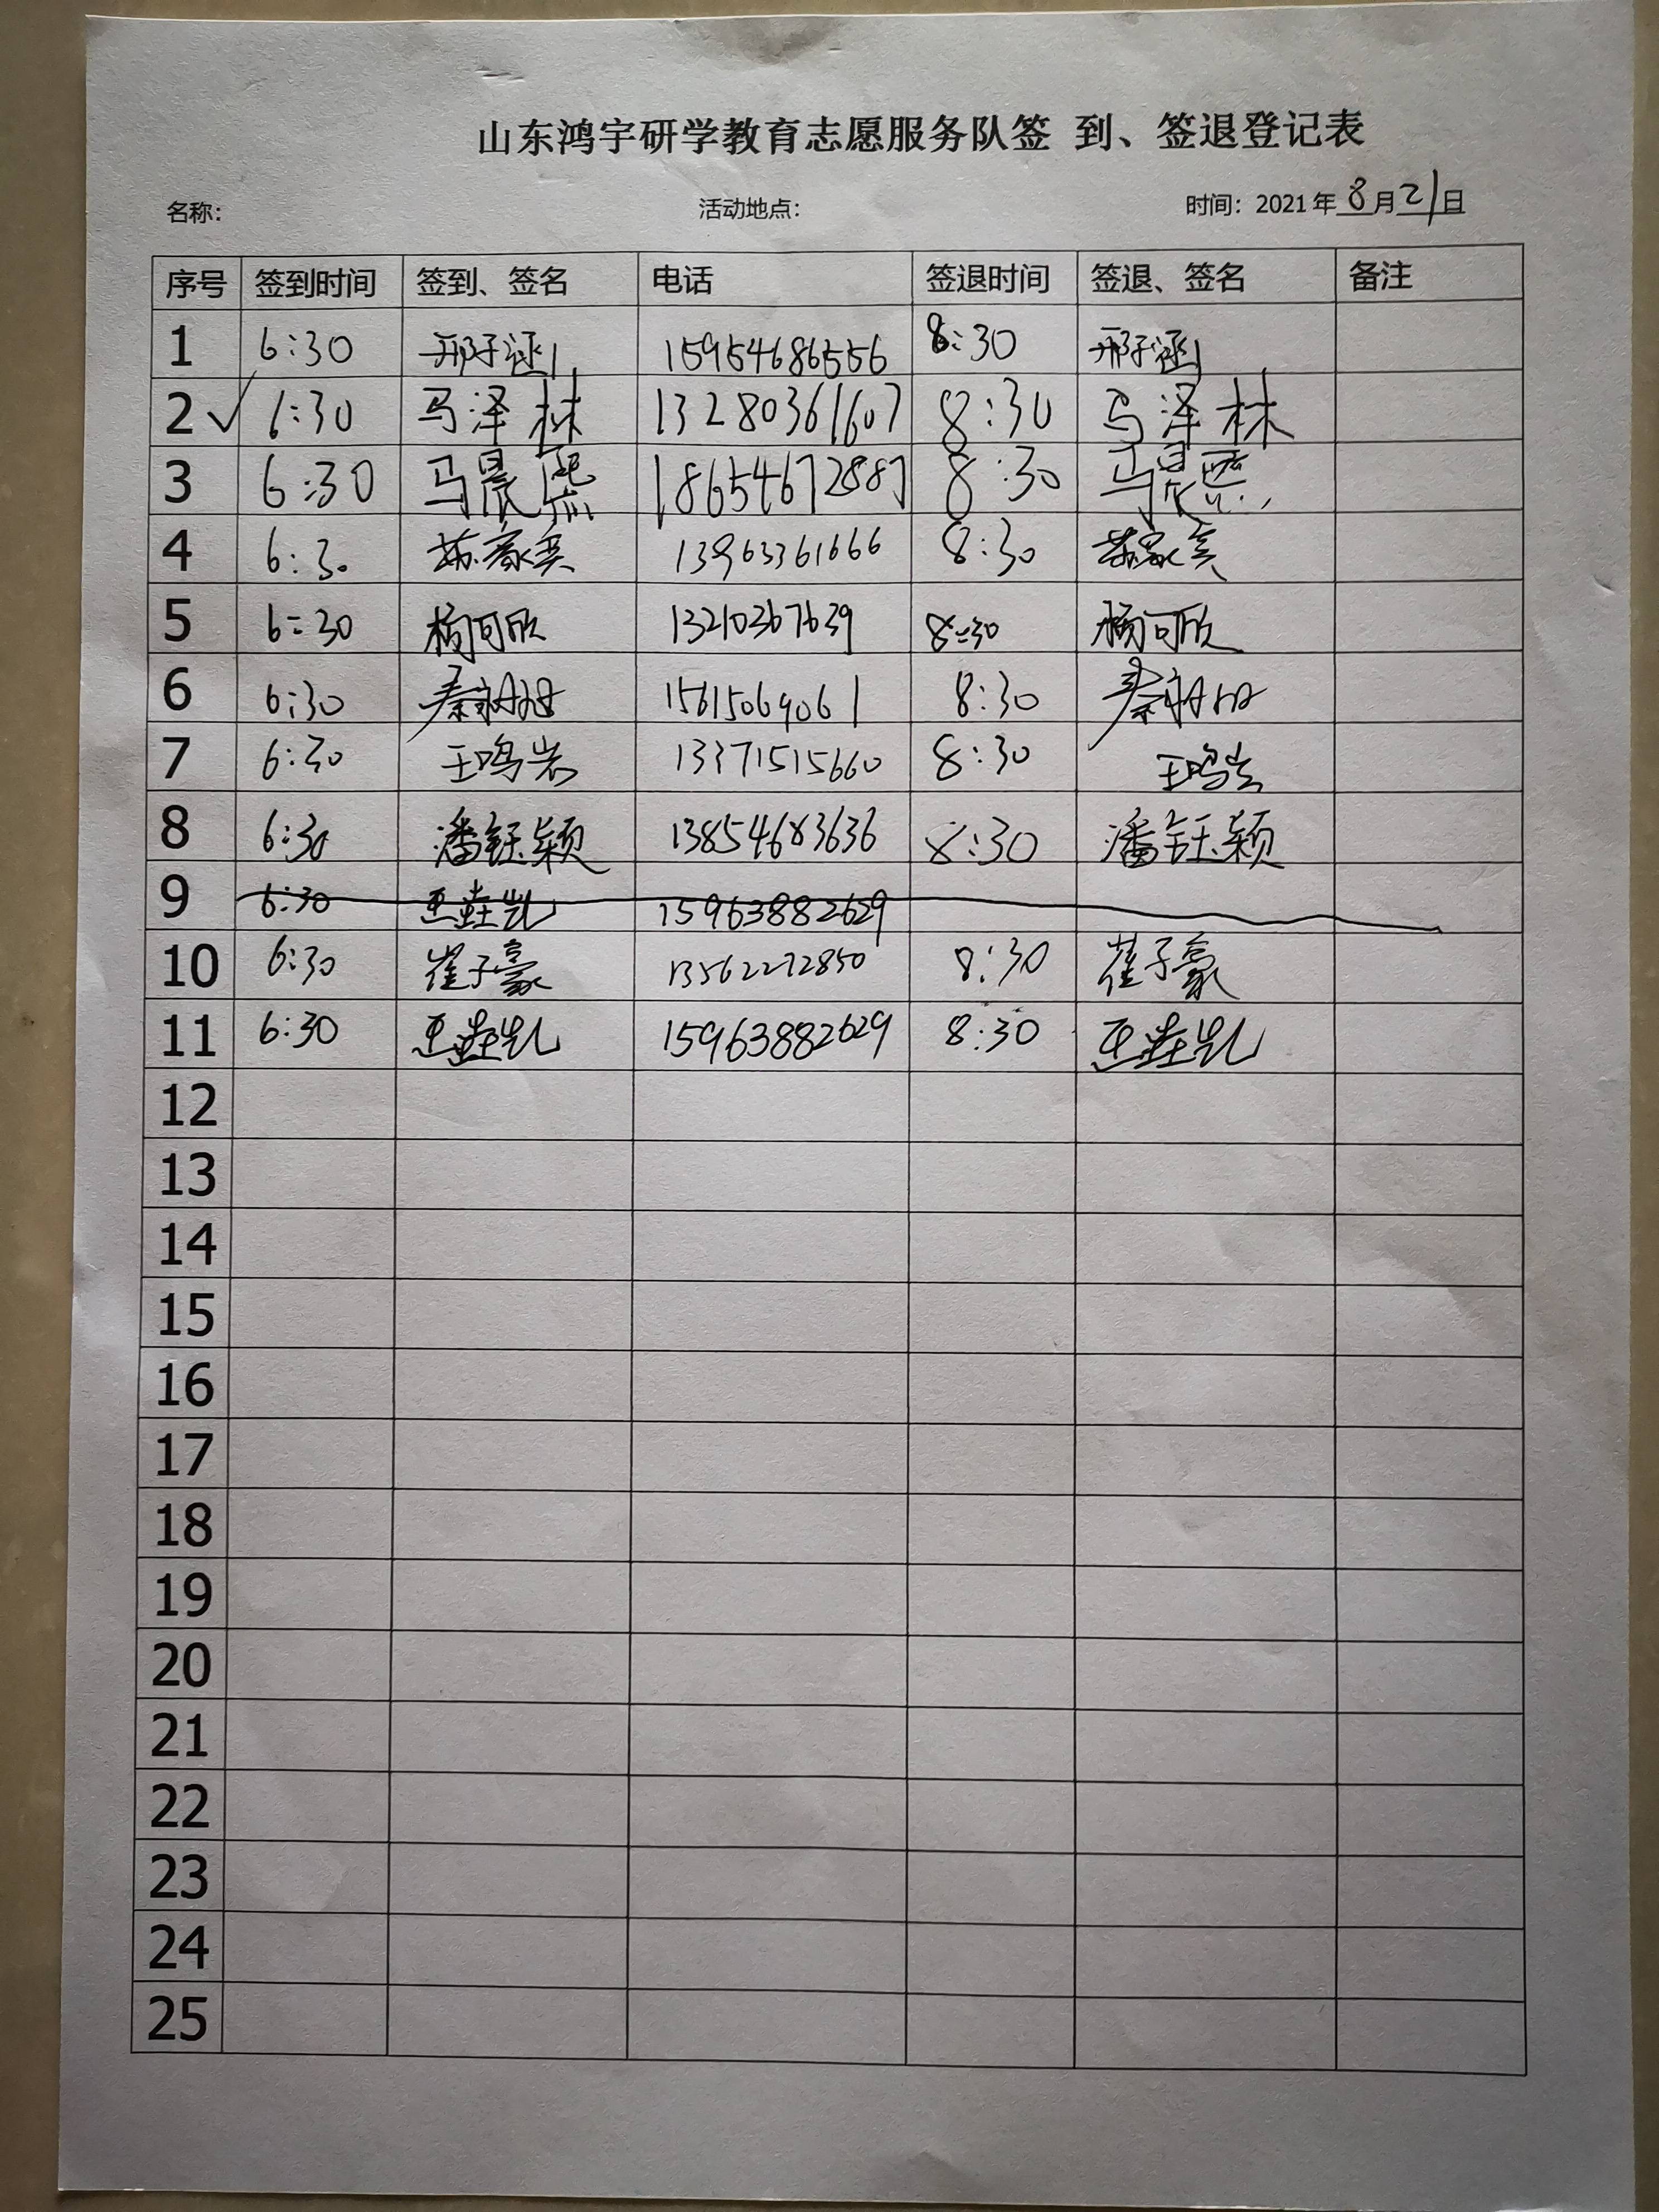 山东鸿宇研学教育志愿服务队签 到、签退登记表
名称： 活动地点： 时间：2021年8月21日
序号 签到时间 签到、签名 电话 签退时间 签退、签名 备注
1 6:30 邢子涵 15954686556 8:30 邢子涵
2 ✓ 6:30 马泽林 13280361607 8:30 马泽林
3 6:30 马晨熙 18654672887 8:30 马晨熙
4 6:30 苏家奕 13963361666 8:30 苏家奕
5 6:30 杨可欣 13210367639 8:30 杨可欣
6 6:30 秦 15615069061 8:30 秦
7 6:30 王鸣岩 13371515660 8:30 王鸣岩
8 6:30 潘钰颖 13854683636 8:30 潘钰颖
9 6:30 15963882629
10 6:30 崔子豪 13562272850 8:30 崔子豪
11 6:30 15963882629 8:30
12
13
14
15
16
17
18
19
20
21
22
23
24
25